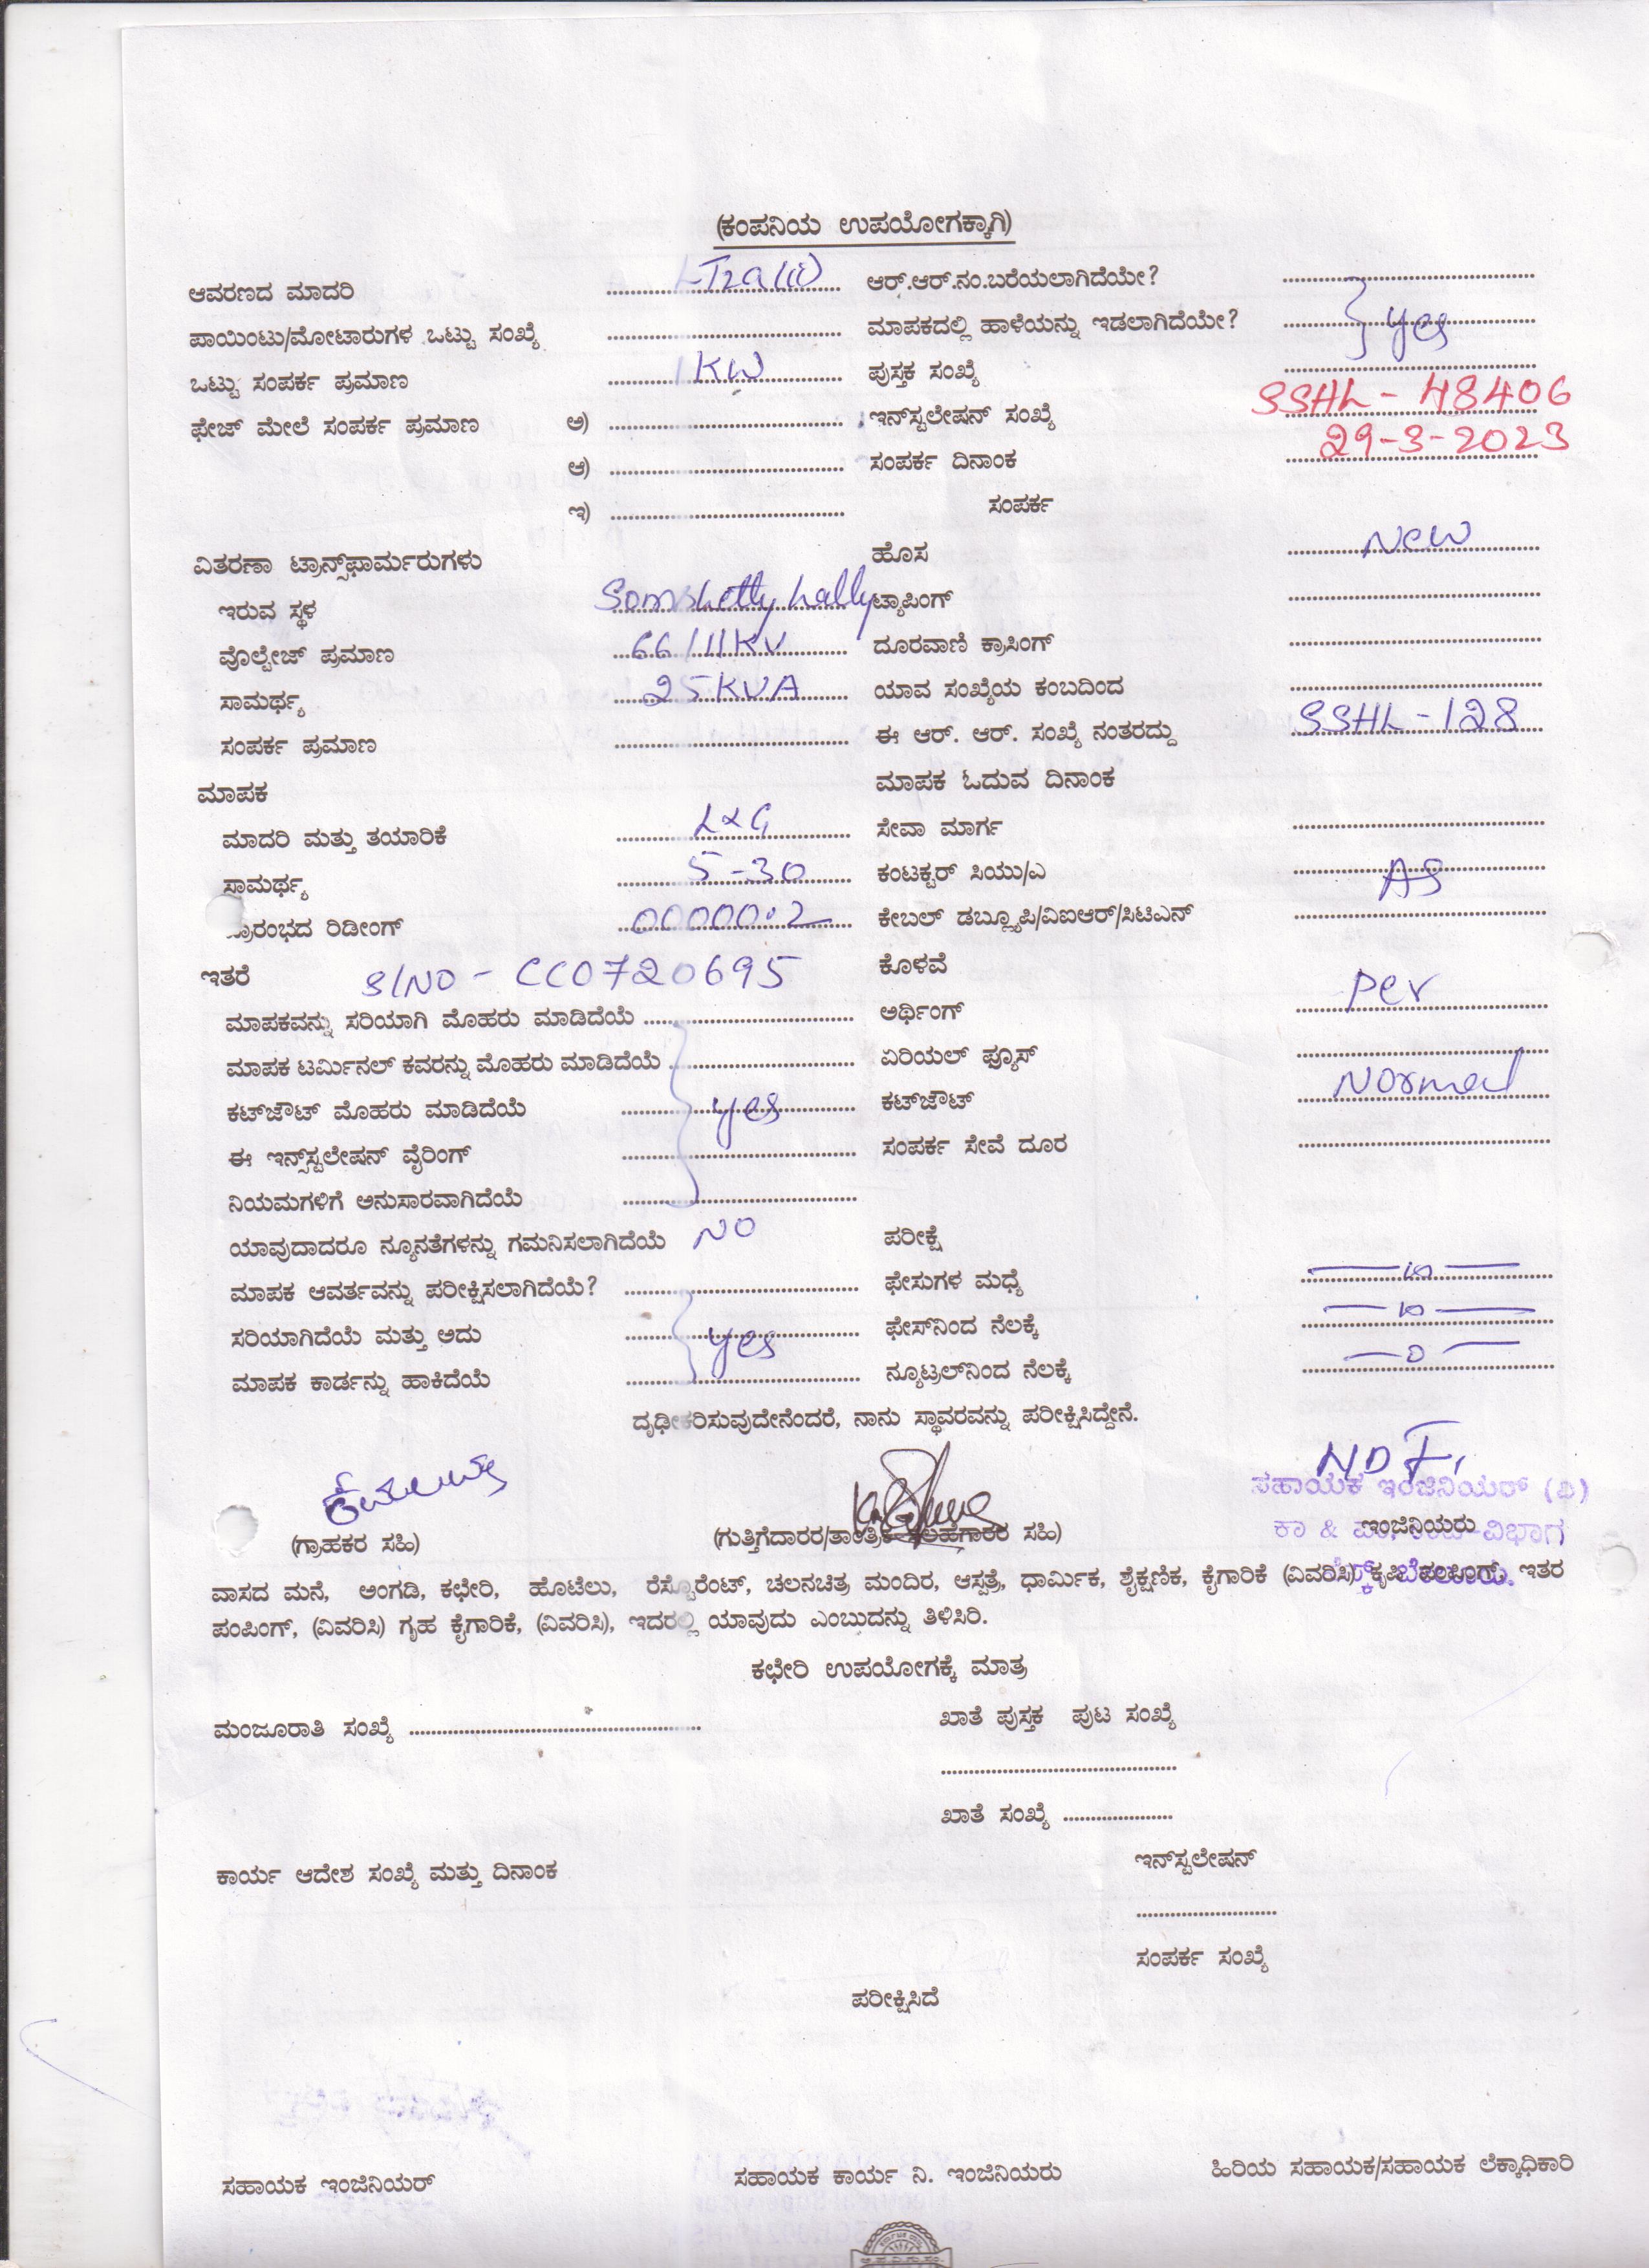 (ಕಂಪನಿಯ ಉಪಯೋಗಕ್ಕಾಗಿ)
ಆವರಣದ ಮಾದರಿ LT2a(ii) ಆರ್.ಆರ್.ನಂ.ಬರೆಯಲಾಗಿದೆಯೇ?
ಪಾಯಿಂಟು/ಮೋಟಾರುಗಳ ಒಟ್ಟು ಸಂಖ್ಯೆ ಮಾಪಕದಲ್ಲಿ ಹಾಳೆಯನ್ನು ಇಡಲಾಗಿದೆಯೇ? yes
ಒಟ್ಟು ಸಂಪರ್ಕ ಪ್ರಮಾಣ 1KW ಪುಸ್ತಕ ಸಂಖ್ಯೆ
ಫೇಜ್ ಮೇಲೆ ಸಂಪರ್ಕ ಪ್ರಮಾಣ ಅ) ಇನ್‌ಸ್ಟಲೇಷನ್ ಸಂಖ್ಯೆ SSHL - 48406
ಆ) ಸಂಪರ್ಕ ದಿನಾಂಕ 29-3-2023
ಇ) ಸಂಪರ್ಕ
ವಿತರಣಾ ಟ್ರಾನ್ಸ್‌ಫಾರ್ಮರುಗಳು ಹೊಸ New
ಇರುವ ಸ್ಥಳ Somshettyhally ಟ್ಯಾಪಿಂಗ್
ವೊಲ್ಟೇಜ್ ಪ್ರಮಾಣ 66/11KV ದೂರವಾಣಿ ಕ್ರಾಸಿಂಗ್
ಸಾಮರ್ಥ್ಯ 25KVA ಯಾವ ಸಂಖ್ಯೆಯ ಕಂಬದಿಂದ
ಸಂಪರ್ಕ ಪ್ರಮಾಣ ಈ ಆರ್. ಆರ್. ಸಂಖ್ಯೆ ನಂತರದ್ದು SSHL-128
ಮಾಪಕ ಮಾಪಕ ಓದುವ ದಿನಾಂಕ
ಮಾದರಿ ಮತ್ತು ತಯಾರಿಕೆ L&G ಸೇವಾ ಮಾರ್ಗ
ಸಾಮರ್ಥ್ಯ 5-30 ಕಂಟಕ್ಟರ್ ಸಿಯು/ಎ AS
ಪ್ರಾರಂಭದ ರಿಡೀಂಗ್ 000000.2 ಕೇಬಲ್ ಡಬ್ಲ್ಯೂಪಿ/ವಿಐಆರ್/ಸಿಟಿಎನ್
ಇತರೆ S/NO - CC0720695 ಕೊಳವೆ
ಮಾಪಕವನ್ನು ಸರಿಯಾಗಿ ಮೊಹರು ಮಾಡಿದೆಯೆ ಅರ್ಥಿಂಗ್ per
ಮಾಪಕ ಟರ್ಮಿನಲ್ ಕವರನ್ನು ಮೊಹರು ಮಾಡಿದೆಯೆ ಏರಿಯಲ್ ಫ್ಯೂಸ್
ಕಟ್‌ಜೌಟ್ ಮೊಹರು ಮಾಡಿದೆಯೆ yes ಕಟ್‌ಜೌಟ್ Normal
ಈ ಇನ್ಸ್‌ಸ್ಟಲೇಷನ್ ವೈರಿಂಗ್ ಸಂಪರ್ಕ ಸೇವೆ ದೂರ
ನಿಯಮಗಳಿಗೆ ಅನುಸಾರವಾಗಿದೆಯೆ
ಯಾವುದಾದರೂ ನ್ಯೂನತೆಗಳನ್ನು ಗಮನಿಸಲಾಗಿದೆಯೆ NO ಪರೀಕ್ಷೆ
ಮಾಪಕ ಆವರ್ತವನ್ನು ಪರೀಕ್ಷಿಸಲಾಗಿದೆಯೆ? ಫೇಸುಗಳ ಮಧ್ಯೆ
ಸರಿಯಾಗಿದೆಯೆ ಮತ್ತು ಅದು yes ಫೇಸ್‌ನಿಂದ ನೆಲಕ್ಕೆ
ಮಾಪಕ ಕಾರ್ಡನ್ನು ಹಾಕಿದೆಯೆ ನ್ಯೂಟ್ರಲ್‌ನಿಂದ ನೆಲಕ್ಕೆ
ದೃಢೀಕರಿಸುವುದೇನೆಂದರೆ, ನಾನು ಸ್ಥಾವರವನ್ನು ಪರೀಕ್ಷಿಸಿದ್ದೇನೆ.
ಸಹಾಯಕ ಇಂಜಿನಿಯರ್ (ವಿ)
(ಗ್ರಾಹಕರ ಸಹಿ) (ಗುತ್ತಿಗೆದಾರರ/ತಾಂತ್ರಿಕ ಸಲಹಗಾರರ ಸಹಿ) ಇಂಜಿನಿಯರು
ವಾಸದ ಮನೆ, ಅಂಗಡಿ, ಕಛೇರಿ, ಹೊಟೆಲು, ರೆಸ್ಟೊರೆಂಟ್, ಚಲನಚಿತ್ರ ಮಂದಿರ, ಆಸ್ಪತ್ರೆ, ಧಾರ್ಮಿಕ, ಶೈಕ್ಷಣಿಕ, ಕೈಗಾರಿಕೆ (ವಿವರಿಸಿ) ಇತರ
ಪಂಪಿಂಗ್, (ವಿವರಿಸಿ) ಗೃಹ ಕೈಗಾರಿಕೆ, (ವಿವರಿಸಿ), ಇದರಲ್ಲಿ ಯಾವುದು ಎಂಬುದನ್ನು ತಿಳಿಸಿರಿ.
ಕಛೇರಿ ಉಪಯೋಗಕ್ಕೆ ಮಾತ್ರ
ಮಂಜೂರಾತಿ ಸಂಖ್ಯೆ ಖಾತೆ ಪುಸ್ತಕ ಪುಟ ಸಂಖ್ಯೆ
ಖಾತೆ ಸಂಖ್ಯೆ
ಕಾರ್ಯ ಆದೇಶ ಸಂಖ್ಯೆ ಮತ್ತು ದಿನಾಂಕ ಇನ್‌ಸ್ಟಲೇಷನ್
ಸಂಪರ್ಕ ಸಂಖ್ಯೆ
ಪರೀಕ್ಷಿಸಿದೆ
ಸಹಾಯಕ ಇಂಜಿನಿಯರ್ ಸಹಾಯಕ ಕಾರ್ಯ ನಿ. ಇಂಜಿನಿಯರು ಹಿರಿಯ ಸಹಾಯಕ/ಸಹಾಯಕ ಲೆಕ್ಕಾಧಿಕಾರಿ